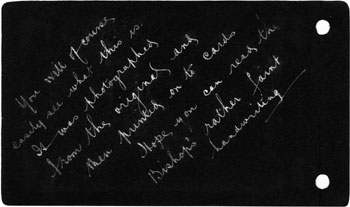 You will of course
easily see what this is.
It was photographed
from the original and
then printed on to cards
Hope you can read the
Bishop's rather faint
handwriting